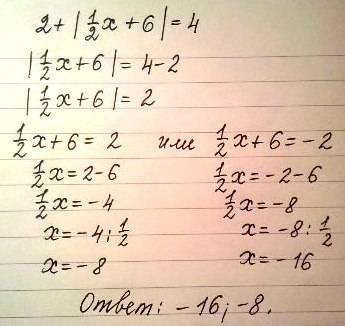 2+|1/2x+6|=4
|1/2x+6|=4-2
|1/2x+6|=2
1/2x+6=2 или 1/2x+6=-2
1/2x=2-6 1/2x=-2-6
1/2x=-4 1/2x=-8
x=-4:1/2 x=-8:1/2
x=-8 x=-16
Ответ: -16; -8.